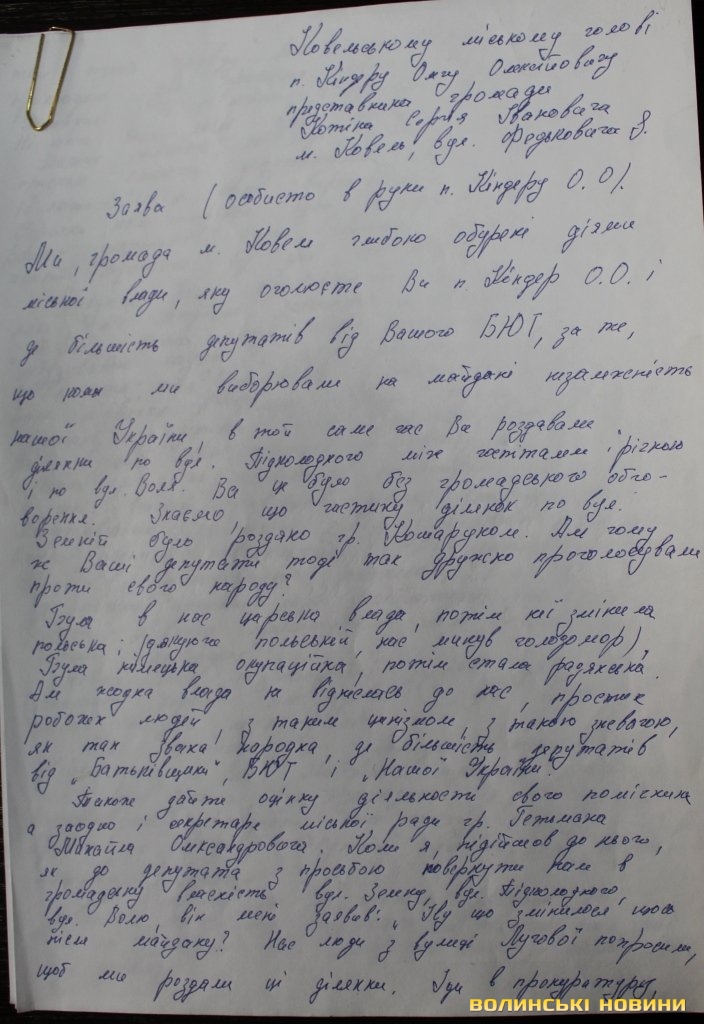 Ковельському міському голові
п. Кіндеру Олегу Олексійовичу
представника громади
Котіка Сергія Івановича
м. Ковель, вул. Федьковича 8.
Заява (особисто в руки п. Кіндеру О.О).
Ми, громада м. Ковеля глибоко обурені діями
міської влади, яку очолюєте Ви п. Кіндер О.О. і
де більшість депутатів від Вашого БЮТ, за те,
що коли ми виборювали на майдані незалежність
нашої України, в той саме час Ви роздавали
ділянки по вул. Підколодного між госпіталем і річкою
і по вул. Воля. Ва це було без громадського обго-
ворення. Знаємо, що частину ділянок по вул.
Зеленій було роздано гр. Кошаруком. Але чому
ж Ваші депутати тоді так дружно проголосували
проти свого народу?
Була в нас царська влада, потім її змінила
польська; (дякуючи польській, нас минув голодомор),
Була німецька окупаційна, потім стала радянська.
Але жодна влада не віднеслась до нас, простих
робочих людей, з таким цинізмом, з такою зневагою,
як так звана народна, де більшість депутатів
від „Батьківщини", БЮТ і „Нашої України".
Також дайте оцінку діяльності свого помічника
а заодно і секретаря міської ради гр. Гетьмана
Михайла Олександровича. Коли я, підійшов до нього,
як до депутата з просьбою повернути нам в
громадську власність вул. Зелену, вул. Підколодного,
вул. Волю він мені заявив: „Ну що змінилося щось
після майдану? Нас люди з вулиці Лугової попросили,
щоб ми роздали ці ділянки. Іди в прокуратуру,
ВОЛИНСЬКІ НОВИНИ